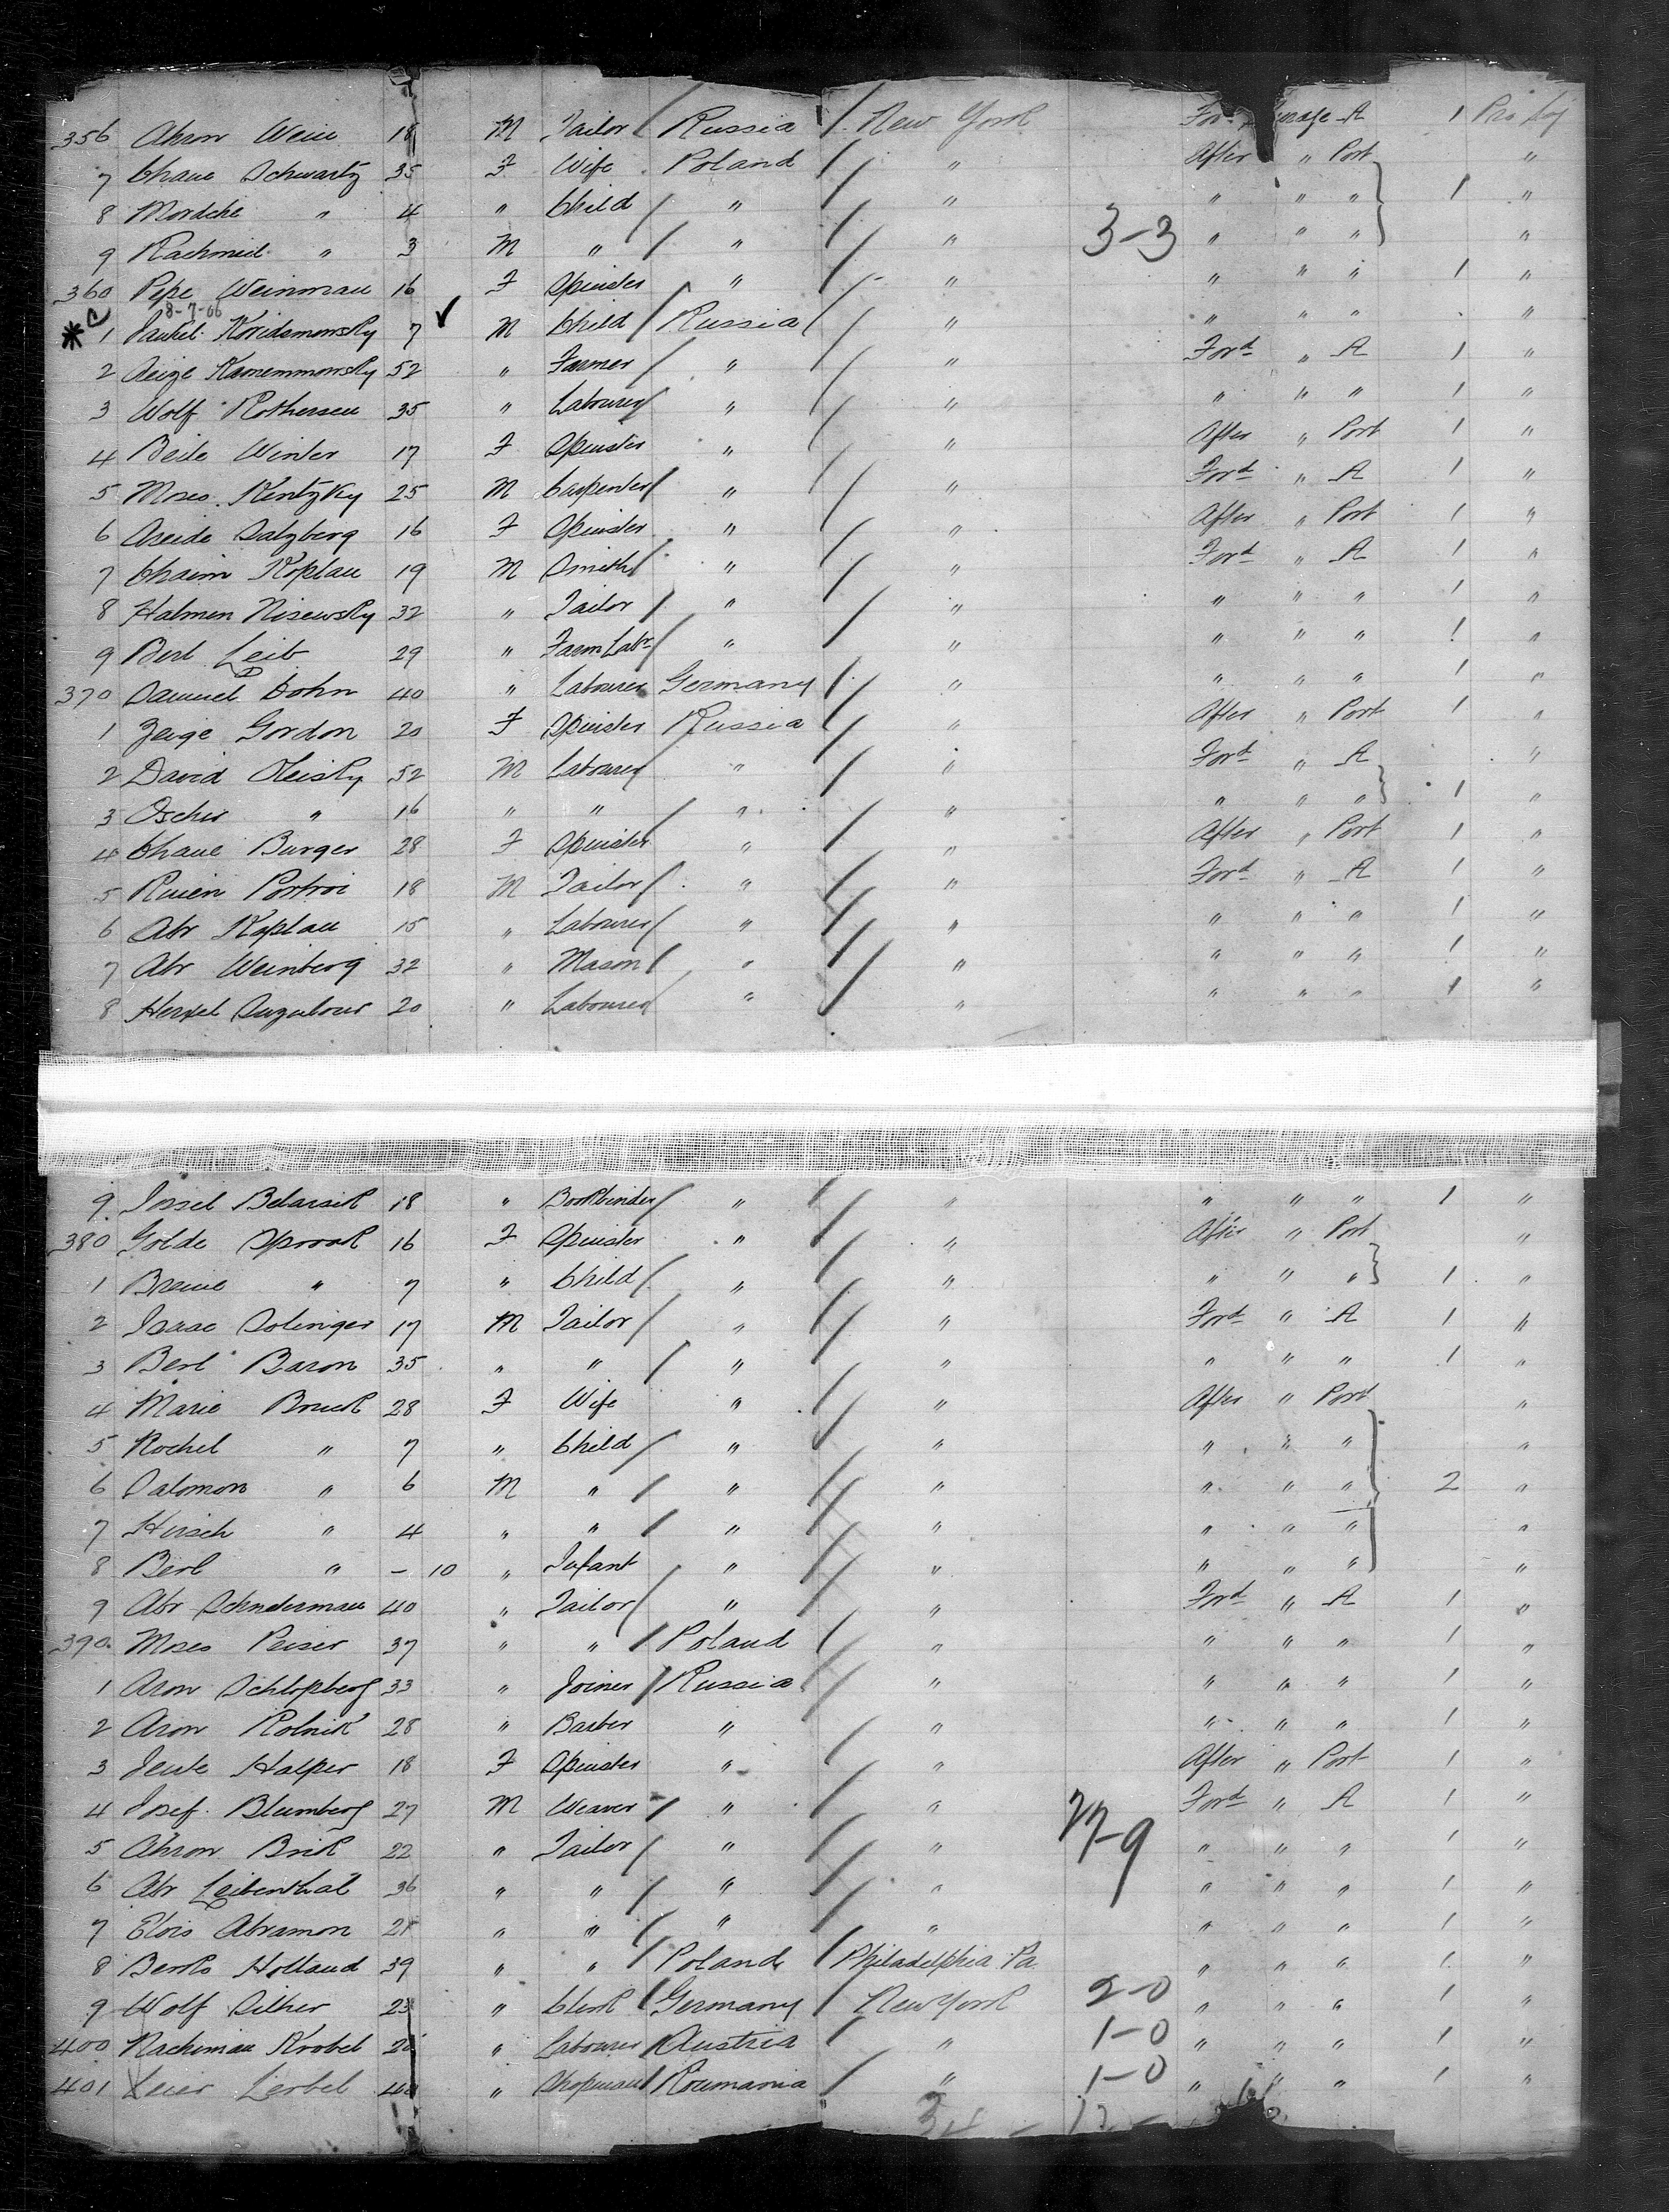 356 Ahron Wein 18 M Tailor / Russia / New York For. Steerage A 1 Pro Log
7 Chane Schwartz 35 F Wife Poland / " After " Port "
8 Mordche " 4 " Child / " / " " " " 1 "
9 Rachmiel " 3 M " / " / " 3-3 " " " "
360 Pepe Weinman 16 F Spinster " / " " " " 1 "
8-7-06
* C 1 Jankel Koridsmonsky 7 ✓ M Child / Russia / " " " " "
2 Kamemmonsky 52 " Farmer / " / " Ford " A 1 "
3 Wolf Rothersen 35 " Labourer / " / " " " " 1 "
4 Beile Winter 17 F Spinster " / " After " Port 1 "
5 Moses Kentzky 25 M Carpenter / " / " Ford " A 1 "
6 Salzberg 16 F Spinster " / " After " Port 1 "
7 Chaim Koplan 19 M Smith / " / " Ford " A 1 "
8 Halmen Nisewsky 32 " Tailor / " / " " " " 1 "
9 Berl Leib 29 " Farm Labr / " / " " " " 1 "
370 Samuel Dohn 40 " Labourer Germany / " " " " 1 "
1 Zeige Gordon 20 F Spinster Russia / " After " Port 1 "
2 David Oleisky 52 M Labourer " / " Ford " A "
3 Oscher " 16 " " / " / " " " " 1 "
4 Chane Burger 28 F Spinster " / " After " Port 1 "
5 Ruien Portnoi 18 M Tailor / " / " Ford " A 1 "
6 Abr Kaplan 15 " Labourer / " / " " " " 1 "
7 Abr Weinberg 32 " Mason / " / " " " " 1 "
8 20 " Labourer " / " " " " 1 "
9 Jossel Belarsik 18 " Bookbinder / " / " " " " 1 "
380 Golde Sprook 16 F Spinster " / " After " Port "
1 Breine " 7 " Child / " / " " " " 1 "
2 Isaac Solinger 17 M Tailor / " / " Ford " A 1 "
3 Berl Baron 35 " " / " / " " " " 1 "
4 Marie Bruck 28 F Wife " / " After " Port "
5 Rochel " 7 " Child / " / " " " " "
6 Salomon " 6 M " / " / " " " " 2 "
7 Hirsch " 4 " " / " / " " " " "
8 Berl " - 10 " Infant / " / " " " " "
9 Abr Schnederman 40 " Tailor / " / " Ford " A 1 "
390 Moses Peiser 37 " " / Poland / " " " " 1 "
1 Aron Schlopberg 33 " Joiner / Russia / " " " " 1 "
2 Aron Rolnik 28 " Barber " / " " " " 1 "
3 Jente Halper 18 F Spinster " / " After " Port 1 "
4 Josef Blumberg 27 M Weaver / " / " Ford " A 1 "
5 Ahron Brik 22 " Tailor / " / " 27-9 " " " 1 "
6 Abr Leibenthal 36 " " / " / " " " " 1 "
7 Elois Abramon 21 " " / " " " " " 1 "
8 Berko Holland 39 " " / Poland / Philadelphia Pa " " " 1 "
9 Wolf Silher 23 " Clerk / Germany / New York 2-0 " " " 1 "
400 Rachmian Krobel 26 " Labourer / Austria / " 1-0 " " " 1 "
401 Leier Lerbel 40 " Shopman / Roumania / " 1-0 " " " 1 "
34 - 12 -